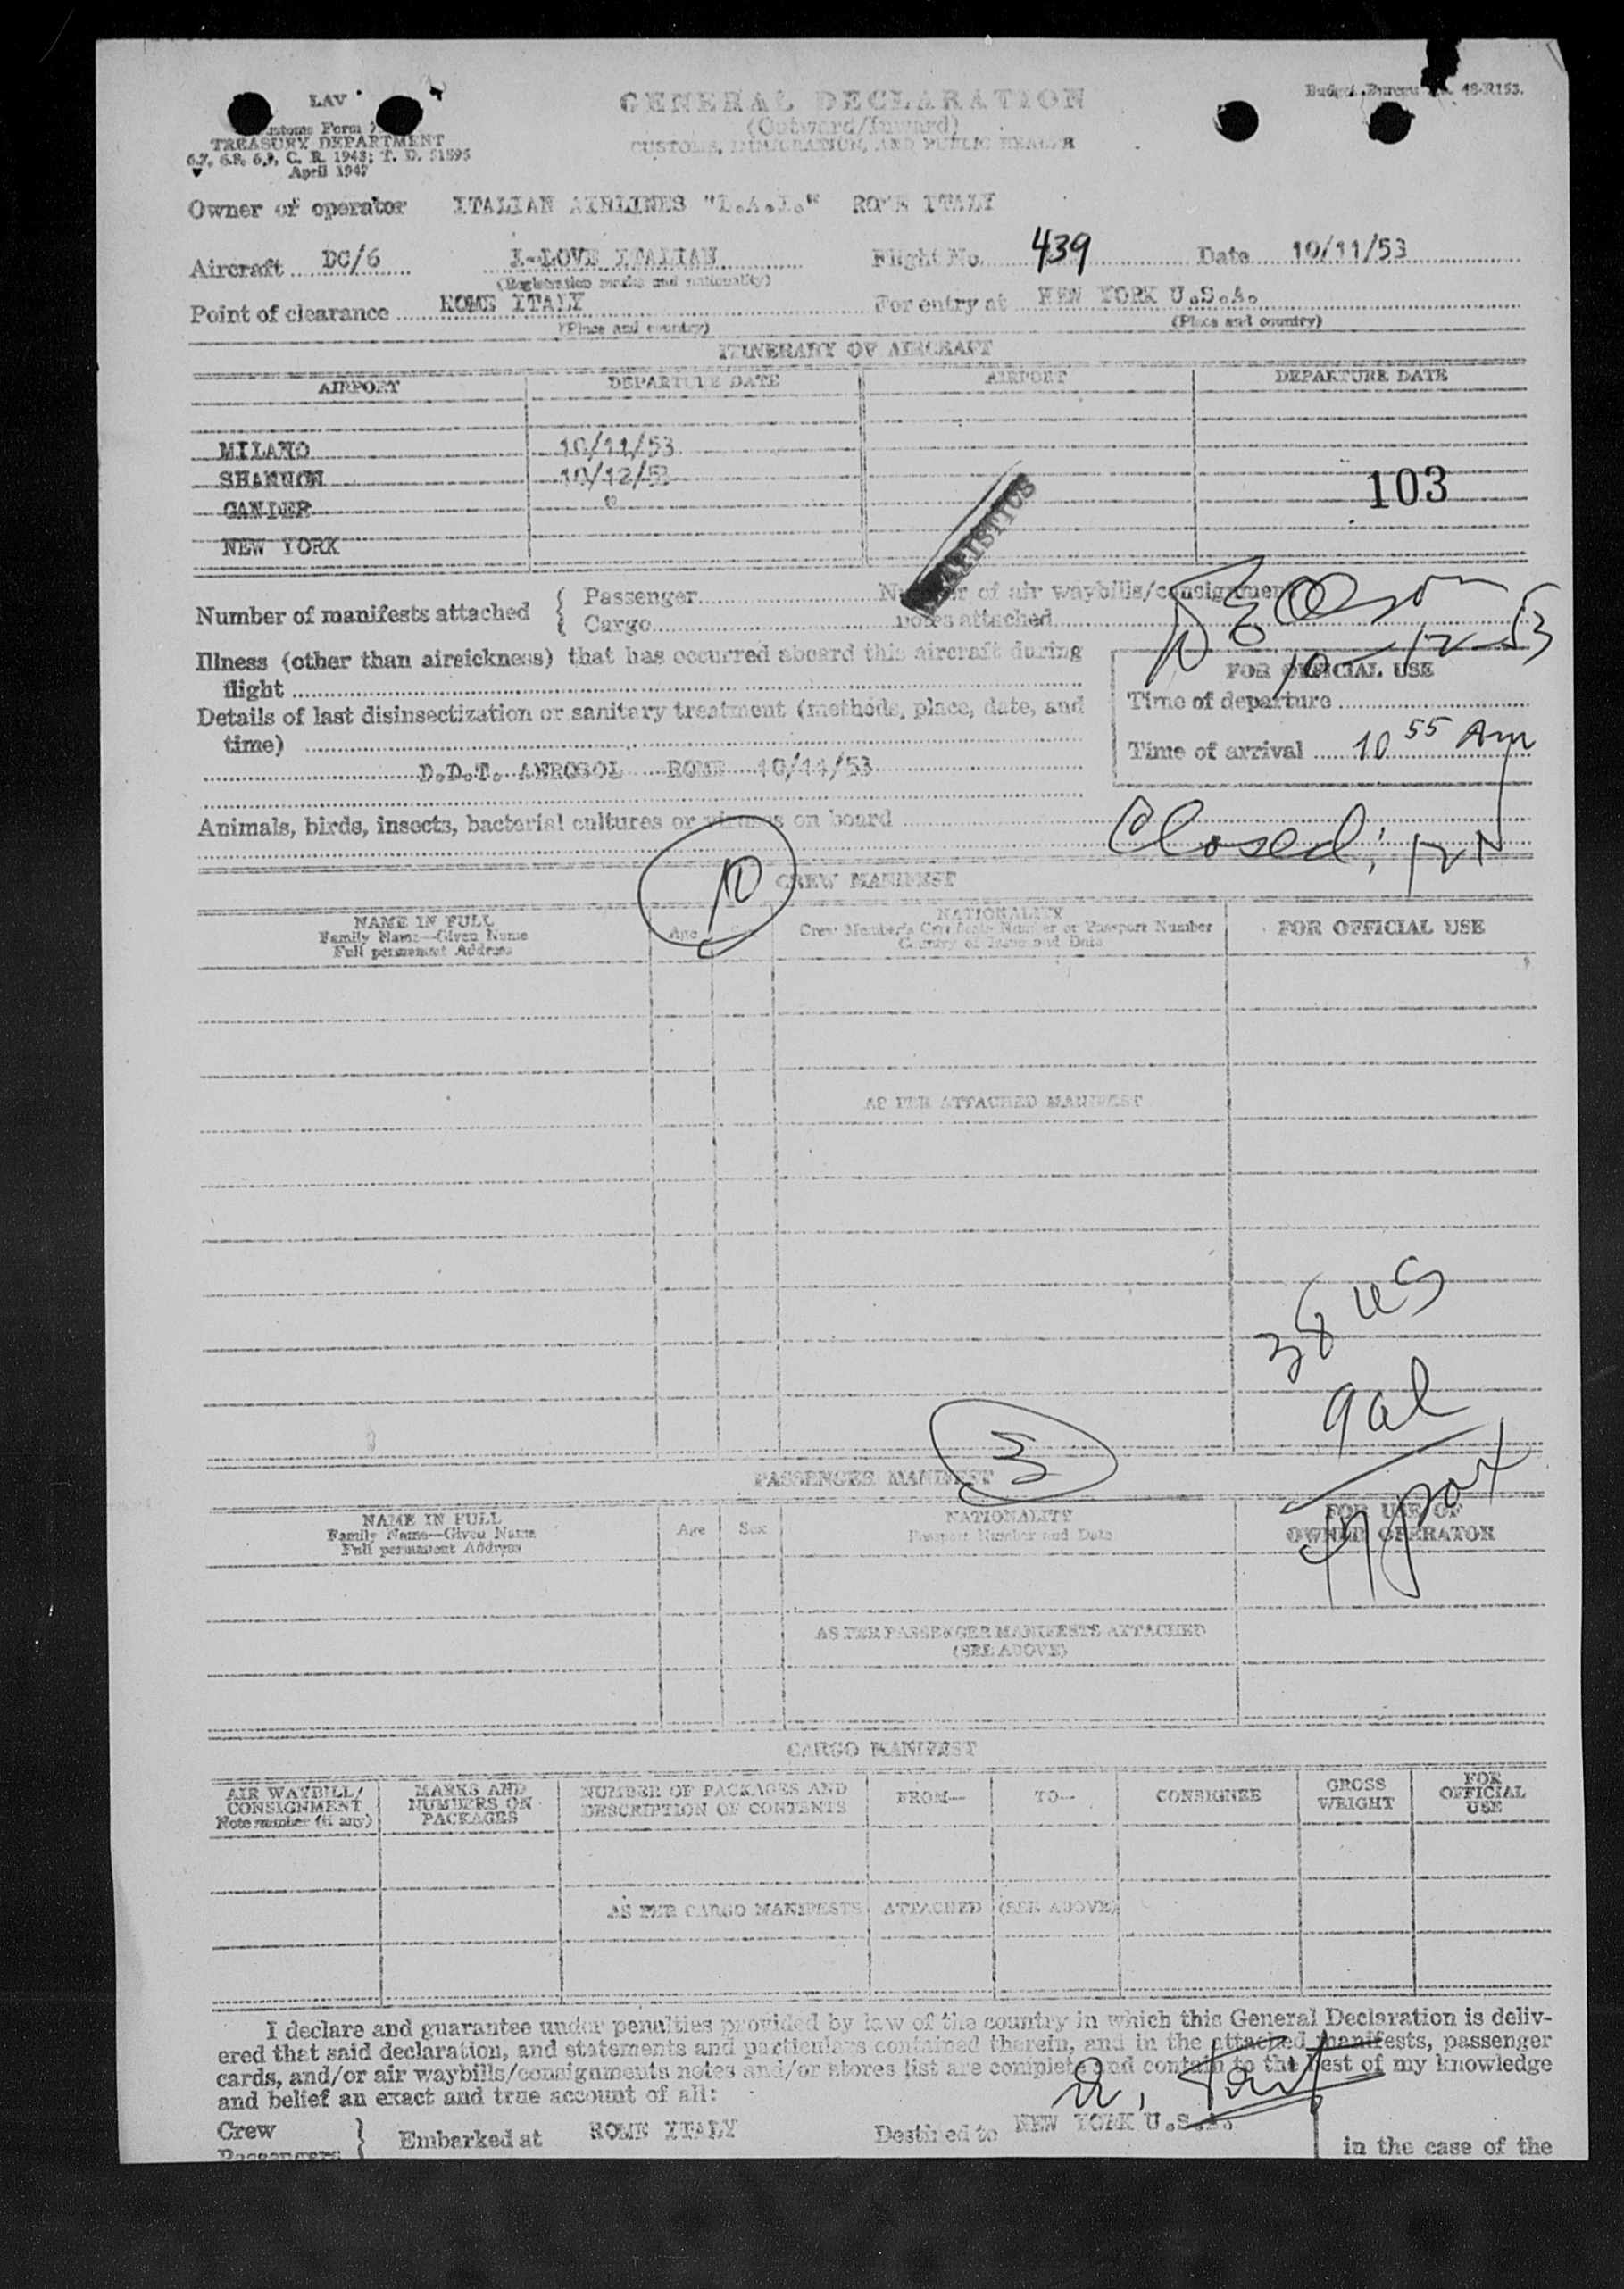 LAV
Customs Form 7
TREASURY DEPARTMENT
6.7, 6.8, 6.9, C. R. 1943; T. D. 51595
April 1947
GENERAL DECLARATION
(Outward/Inward)
CUSTOMS, IMMIGRATION, AND PUBLIC HEALTH
Budget Bureau No. 48-R153.
Owner or operator ITALIAN AIRLINES "L.A.I." ROME ITALY
Aircraft DC/6 I-LOVE ITALIAN Flight No. 439 Date 10/11/53
(Registration marks and nationality)
Point of clearance ROME ITALY For entry at NEW YORK U.S.A.
(Place and country) (Place and country)
ITINERARY OF AIRCRAFT
AIRPORT DEPARTURE DATE AIRPORT DEPARTURE DATE
MILANO 10/11/53
SHANNON 10/12/53
GANDER "
NEW YORK
103
STATISTICS
Number of manifests attached { Passenger Number of air waybills/consignment
Cargo notes attached
10-12-53
Illness (other than airsickness) that has occurred aboard this aircraft during
flight
FOR OFFICIAL USE
Time of departure
Details of last disinsectization or sanitary treatment (methods, place, date, and
time)
Time of arrival 10 55 AM
D.D.T. AEROSOL ROME 10/11/53
Animals, birds, insects, bacterial cultures or viruses on board
Closed; 12N
10
CREW MANIFEST
NAME IN FULL
Family Name—Given Name
Full permanent Address
Age
NATIONALITY
Crew Member's Certificate Number or Passport Number
Country of Issue and Date
FOR OFFICIAL USE
AS PER ATTACHED MANIFEST
38 US
9 al
47 pax
3
PASSENGER MANIFEST
NAME IN FULL
Family Name—Given Name
Full permanent Address
Age Sex
NATIONALITY
Passport Number and Date
FOR USE OF
OWNER OPERATOR
AS PER PASSENGER MANIFESTS ATTACHED
(SEE ABOVE)
CARGO MANIFEST
AIR WAYBILL/
CONSIGNMENT
Note number (if any)
MARKS AND
NUMBERS ON
PACKAGES
NUMBER OF PACKAGES AND
DESCRIPTION OF CONTENTS
FROM—
TO—
CONSIGNEE
GROSS
WEIGHT
FOR
OFFICIAL
USE
AS PER CARGO MANIFESTS ATTACHED (SEE ABOVE)
I declare and guarantee under penalties provided by law of the country in which this General Declaration is deliv-
ered that said declaration, and statements and particulars contained therein, and in the attached manifests, passenger
cards, and/or air waybills/consignments notes and/or stores list are complete and contain to the best of my knowledge
and belief an exact and true account of all:
Crew
Passengers } Embarked at ROME ITALY Destined to NEW YORK U.S.A. in the case of the